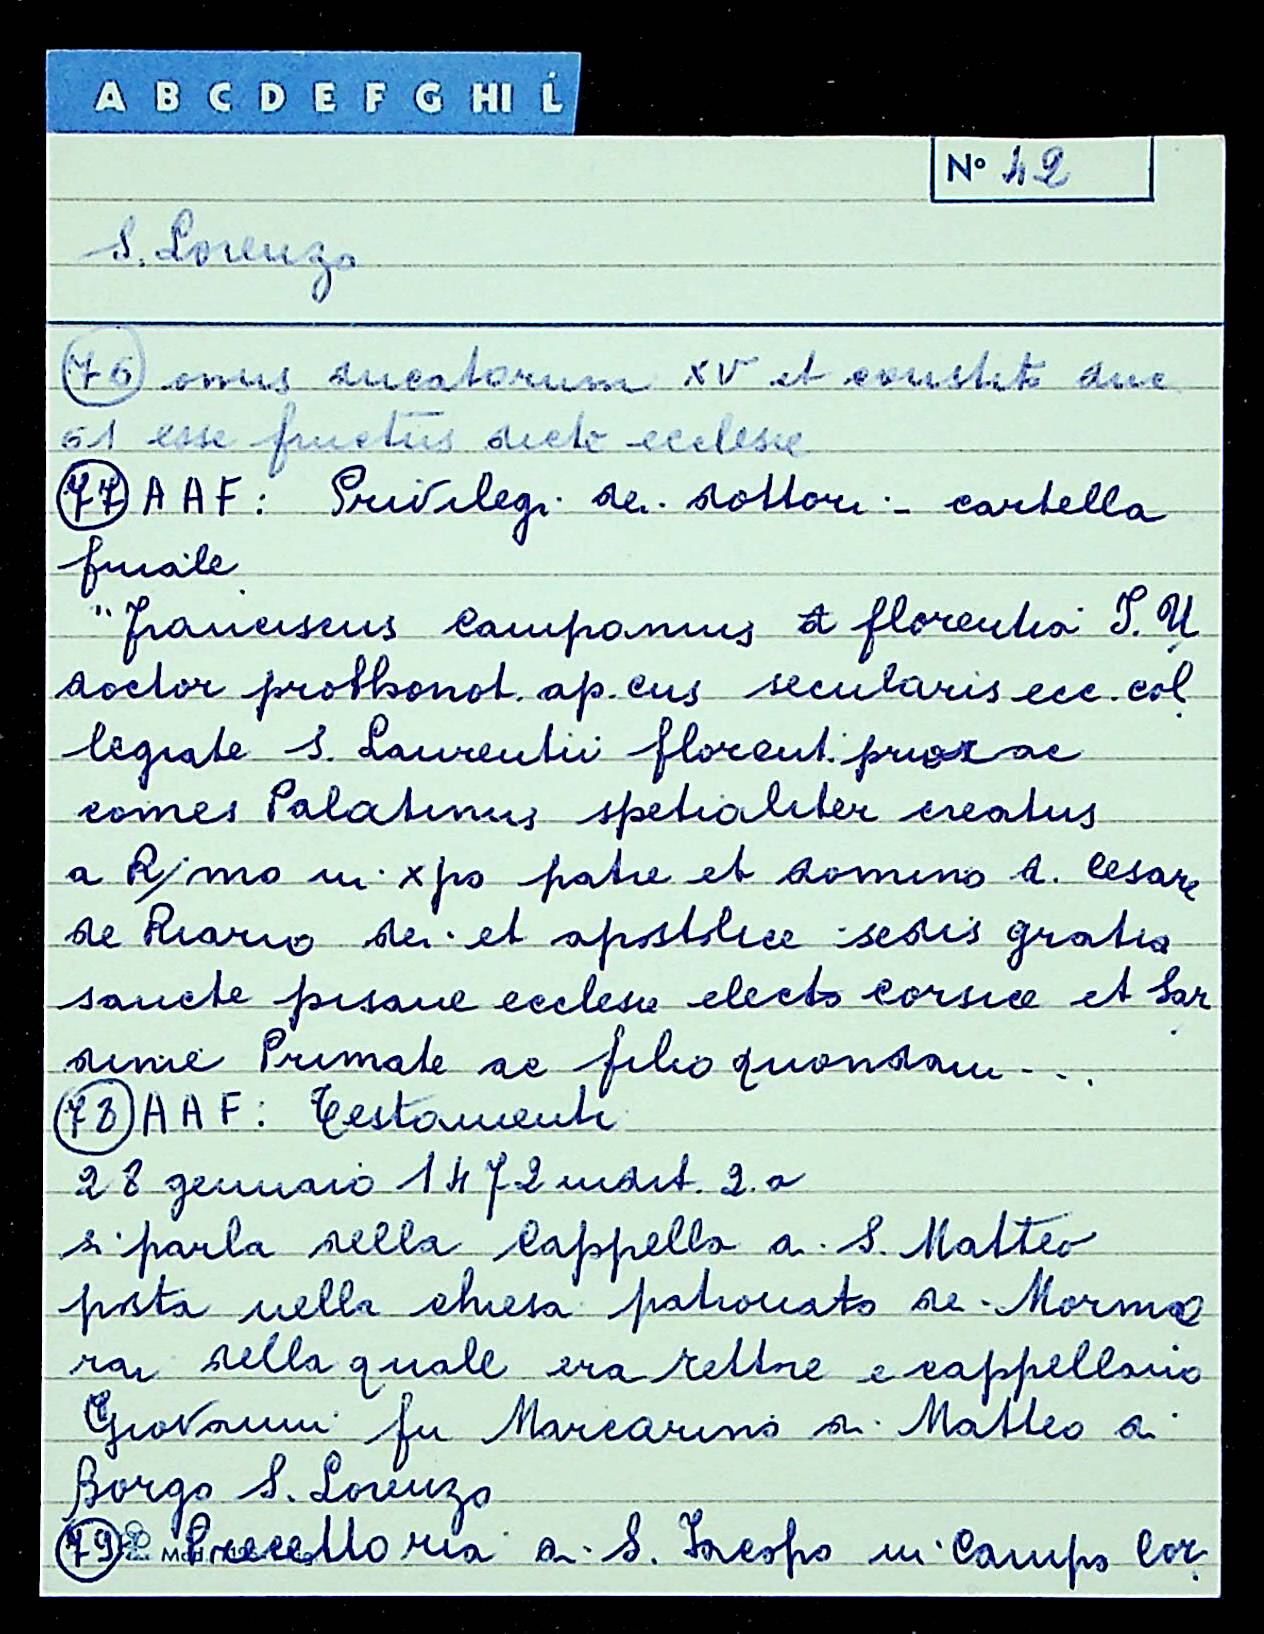 A B C D E F G HI L
Nº 42
S. Lorenzo
76 onus ducatorum XV et constito duc
61 esse fructus dicte ecclesie
77 A A F: Privilegi dei dottori - cartella
finale
"Franciscus Campanus de florentia J. U
doctor prothonot. ap.cus secularis ecc. col
legiate S. Laurentii florent. prior ac
comes Palatinus spetialiter creatus
a R/mo in xpo patre et domino d. Cesare
de Riario dei et apostolice sedis gratia
sancte pisane ecclesie electo Corsice et Sar
dinie Primate ac filio quondam ...
78 A A F: Testamenti
28 gennaio 1472 indit. 2.a
si parla della Cappella di S. Matteo
posta nella chiesa patronato dei Mormo
rai della quale era rettore e cappellano
Giovanni fu Marcarino di Matteo di
Borgo S. Lorenzo
79 Precettoria di S. Jacopo in Campo Cor